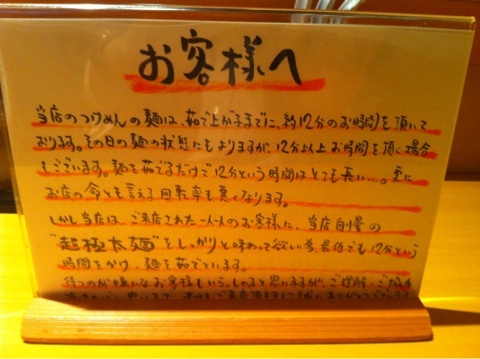 お客様へ
当店のつけめんの麺は、茹で上がるまでに、約12分のお時間を頂いて
おります。その日の麺の状態にもよりますが、12分以上お時間を頂く場合
もございます。麺を茹でるだけで12分という時間はとても長い…。更に
お店の命とも言える回転率も悪くなります。
しかし当店は、ご来店された一人一人のお客様に、当店自慢の
"超極太麺"をしっかりと味わって欲しい為、最低でも12分という
時間をかけ、麺を茹でています。
待つのが嫌いなお客様もいらっしゃると思いますが、ご理解、ご協力